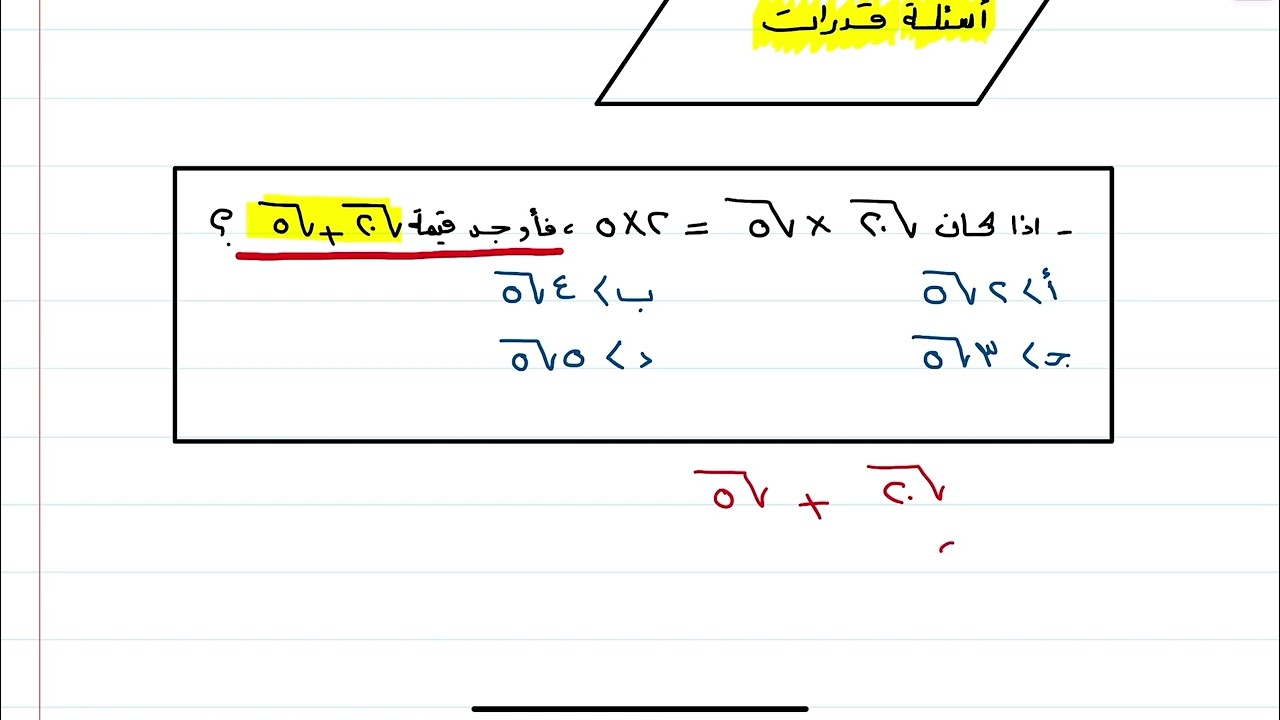 أسئلة قدرات
- اذا كان √٢٠ × √٥ = ٢×٥ ، فأوجد قيمة √٢٠ + √٥ ؟
أ> ٢√٥ ب> ٤√٥
ج> ٣√٥ د> ٥√٥
√٢٠ + √٥